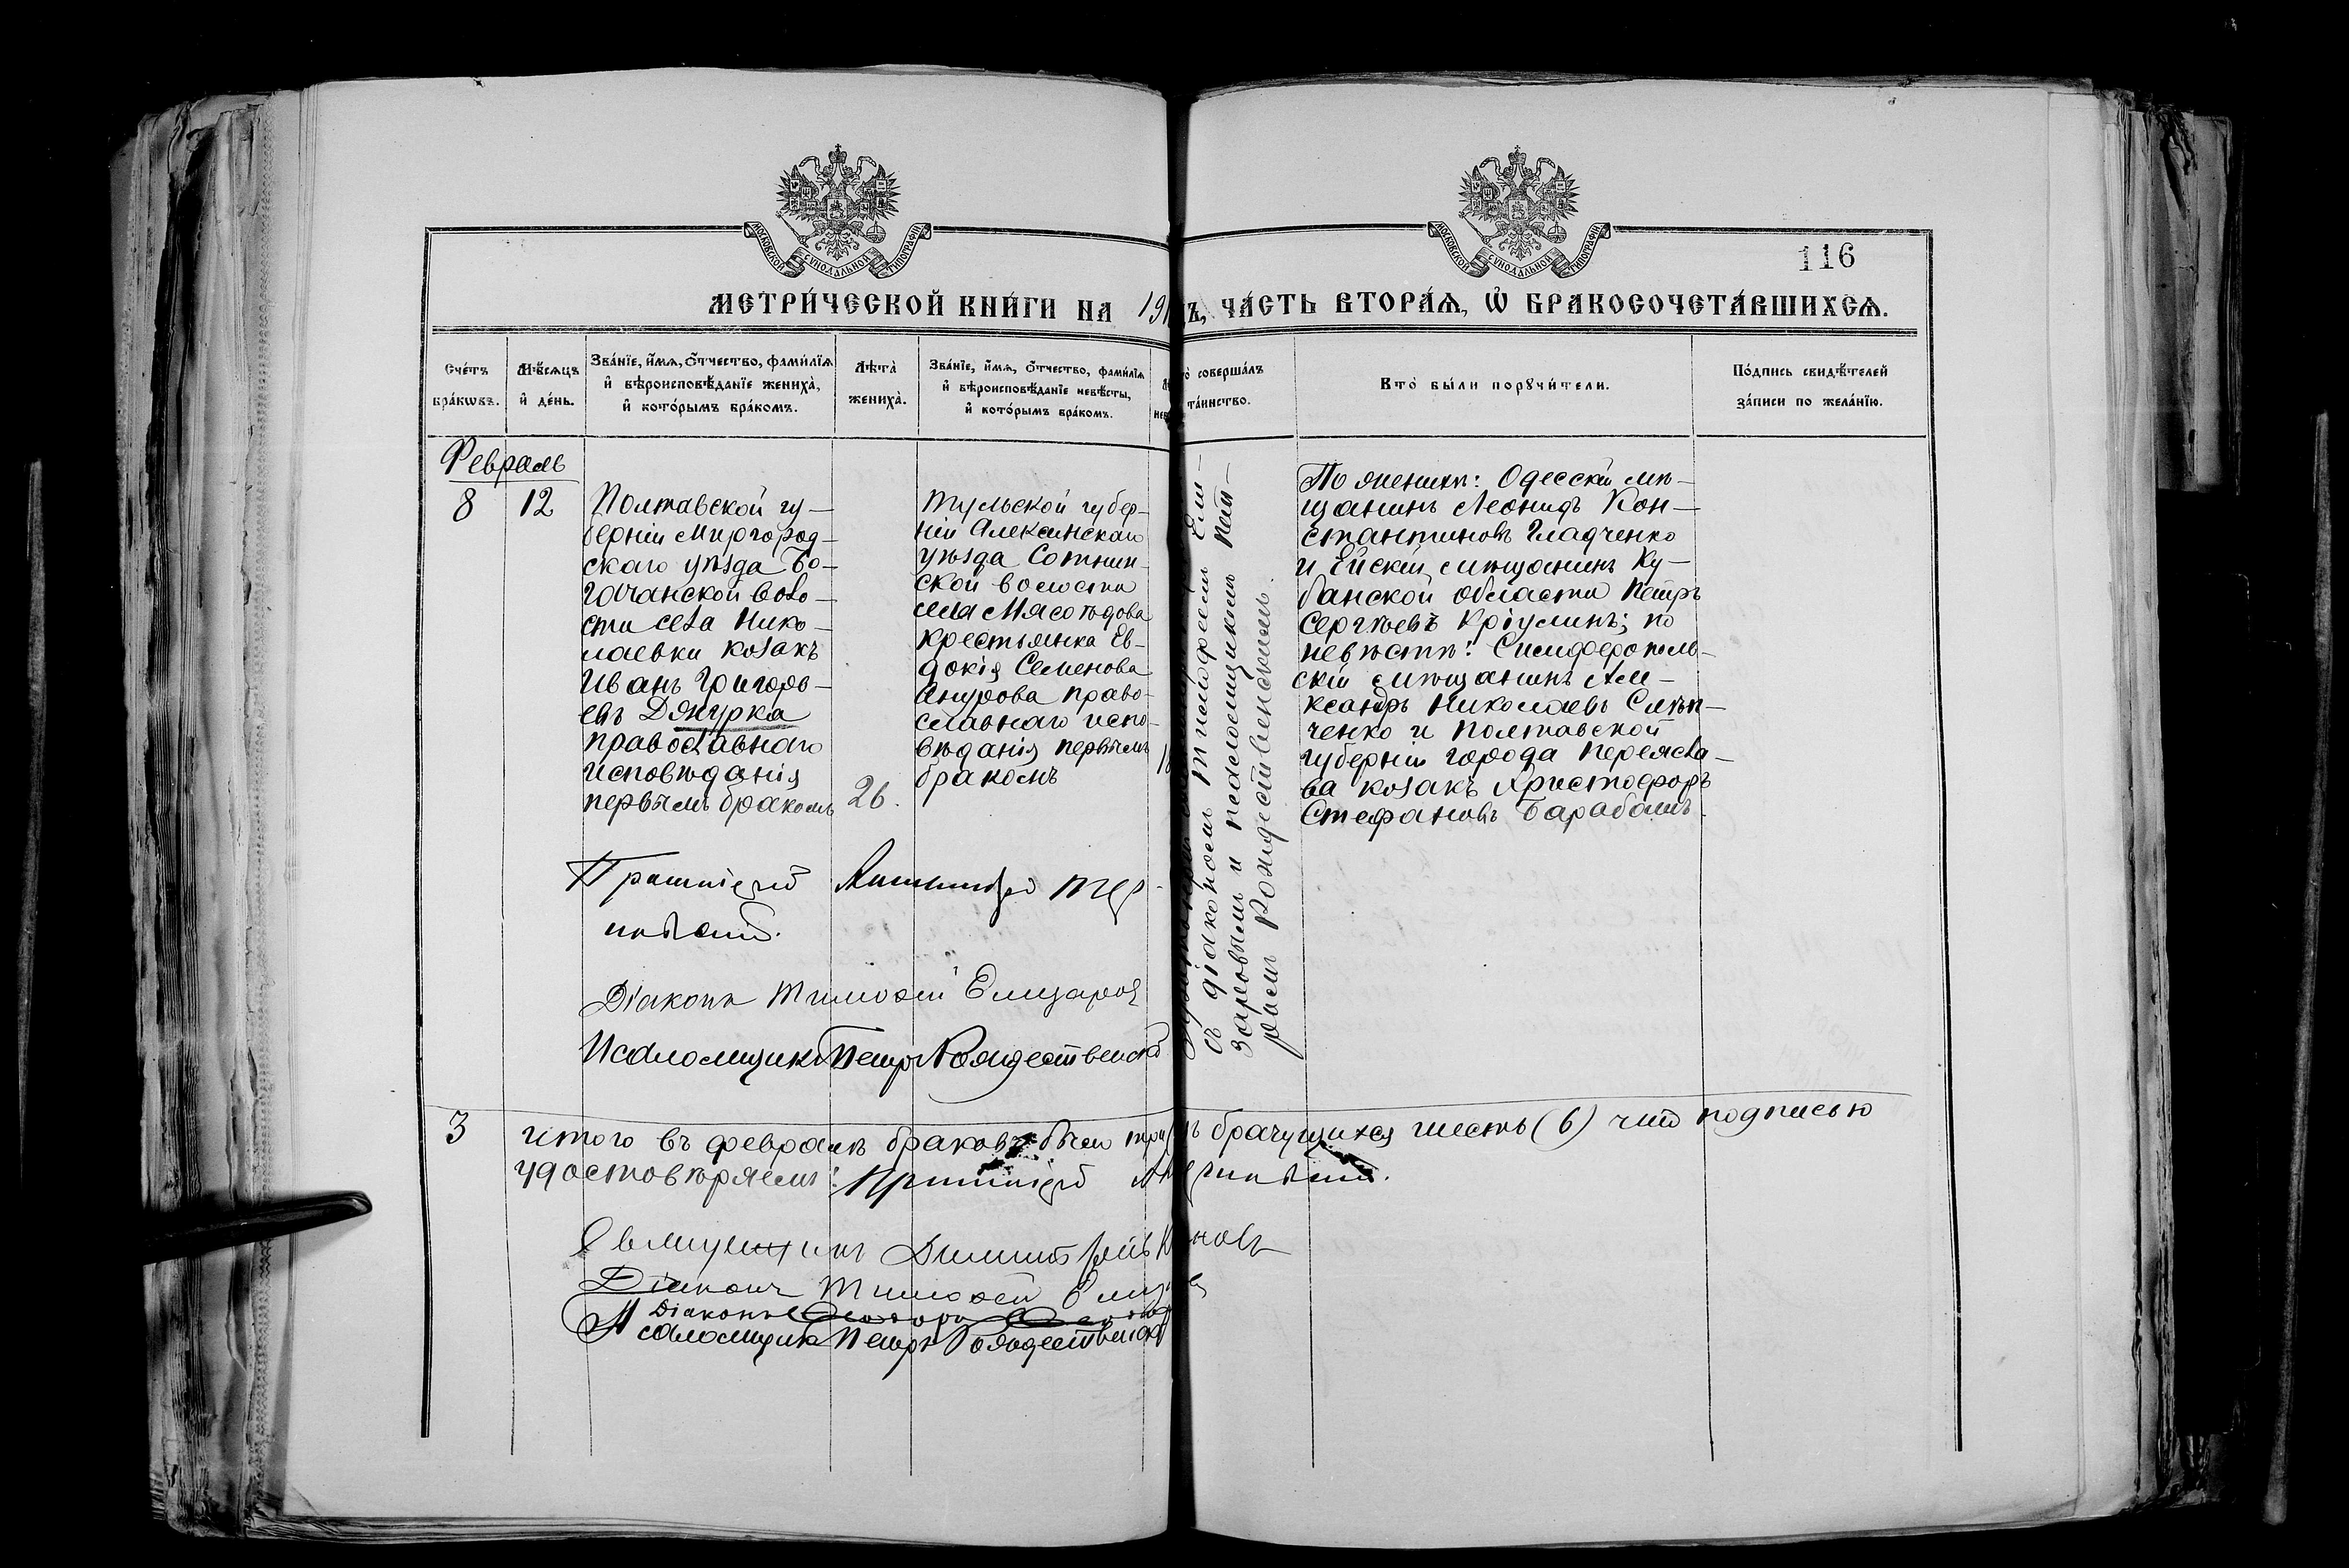 МОСКОВСКОЙ СѴНОДАЛЬНОЙ ТИПОГРАФІИ
МОСКОВСКОЙ СѴНОДАЛЬНОЙ ТИПОГРАФІИ
116
МЕТРИ́ЧЕСКОЙ КНИ́ГИ НА 191 ЧА́СТЬ ВТОРА́Ѧ, Ѡ БРАКОСОЧЕТА́ВШИХСѦ.
Сче́тъ бра́кѡвъ.
Мѣ́сѧцъ и҆ де́нь.
Зва́нїе, и҆́мѧ, о҆́тчество, фами́лїѧ и҆ вѣроисповѣ́данїе жениха̀, и҆ кото́рымъ бра́комъ.
Лѣта̀ жениха̀.
Зва́нїе, и҆́мѧ, о҆́тчество, фами́лїѧ и҆ вѣроисповѣ́данїе невѣ́сты, и҆ кото́рымъ бра́комъ.
соверша́лъ та́инство.
Кто̀ бы́ли порꙋчи́тели.
По́дпись свидѣ́телей за́писи по жела́нїю.
Февраль
8
12
Полтавской гу-
берніи Миргород-
скаго уѣзда Бо-
гачанской воло-
сти села Нико-
лаевки козакъ
Иванъ Григорь-
евъ Дякурка
православнаго
исповѣданія
первымъ бракомъ
26.
Тульской губер-
ніи Алексинскаго
уѣзда Сотнин-
ской волости
села Мясоѣдова
крестьянка Ев-
докія Семенова
Анурова право-
славнаго испо-
вѣданія первымъ
бракомъ
съ діакономъ Тимофеемъ Ели-
заровымъ и псаломщикомъ Пет-
ромъ Рождественскимъ.
По женихѣ: Одесскій мѣ-
щанинъ Леонидъ Кон-
стантиновъ Гладченко
и Ейскій мѣщанинъ Ку-
банской области Петръ
Сергѣевъ Кріулинъ; по
невѣстѣ: Симферополь-
скій мѣщанинъ Але-
ксандръ Николаевъ Слѣп-
ченко и Полтавской
губерніи города Переясла-
ва козакъ Христофоръ
Стефановъ Барабашъ.
Діаконъ Тимоѳей Елизаровъ
Псаломщикъ Петръ Рождественскій
3
Итого въ февралѣ браковъ было три брачущихся шесть (6) что подписью
удостовѣряемъ:
Діаконъ Тимоѳей
Діаконъ
Псаломщикъ Петръ Рождественскій